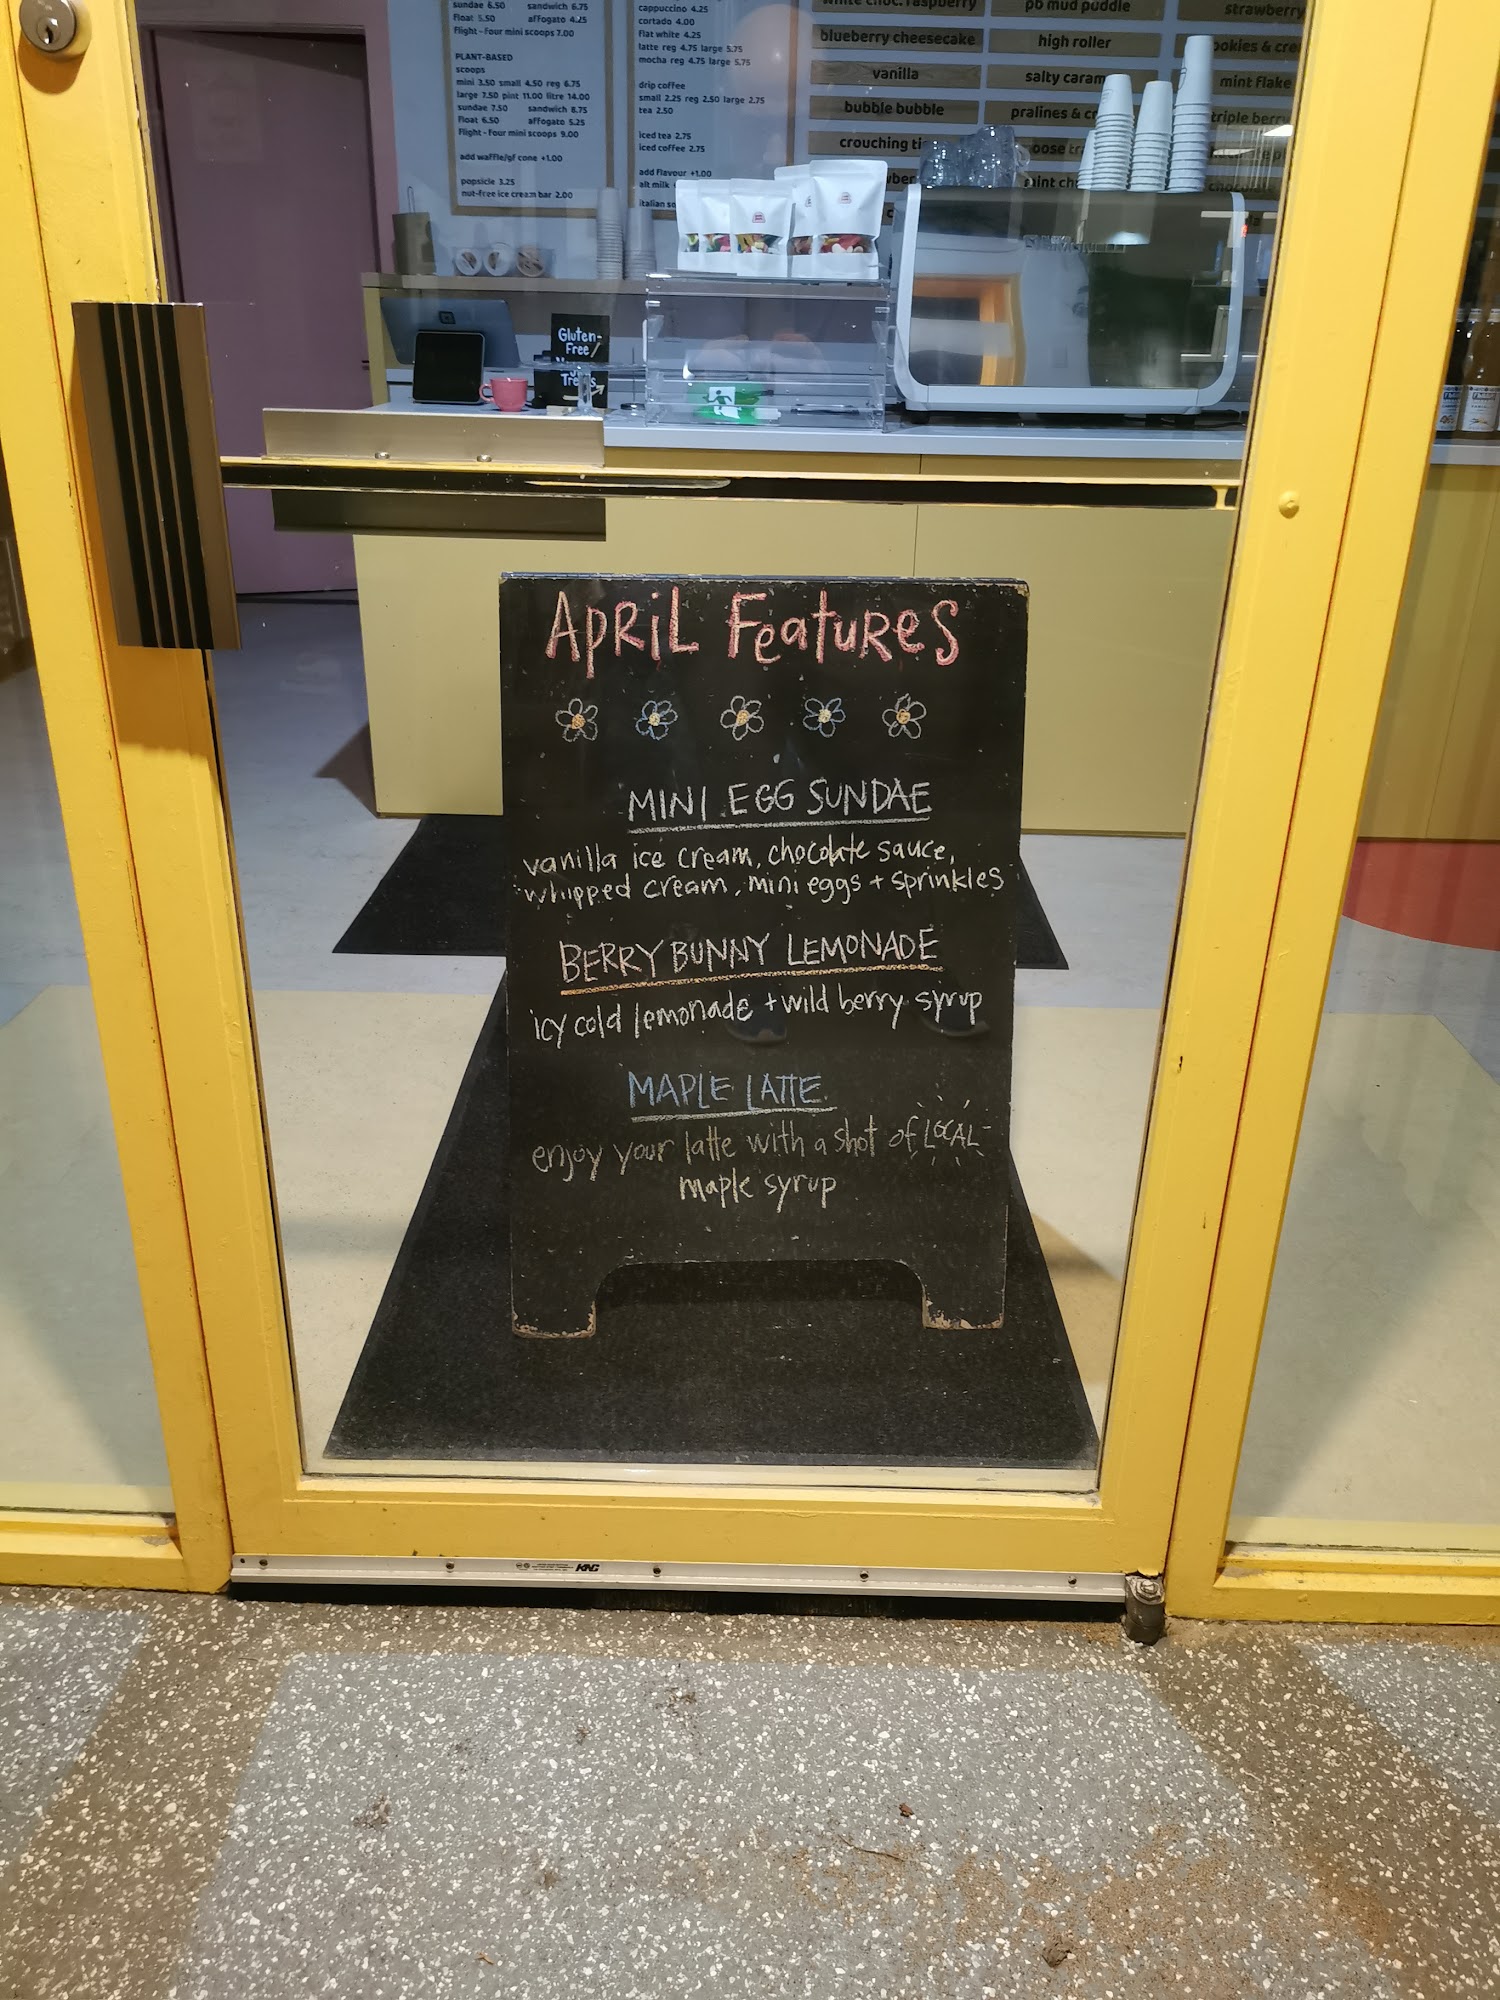 sundae 6.50 sandwich 6.75
float 5.50 affogato 4.25
flight - four mini scoops 7.00
PLANT-BASED
scoops
mini 3.50 small 4.50 reg 6.75
large 7.50 pint 11.00 litre 14.00
sundae 7.50 sandwich 8.75
float 6.50 affogato 5.25
flight - four mini scoops 9.00
add waffle/gf cone +1.00
popsicle 3.25
nut-free ice cream bar 2.00
cappuccino 4.25
cortado 4.00
flat white 4.25
latte reg 4.75 large 5.75
mocha reg 4.75 large 5.75
drip coffee
small 2.25 reg 2.50 large 2.75
tea 2.50
iced tea 2.75
iced coffee 2.75
add flavour +1.00
alt milk
italian so
white choc. raspberry
blueberry cheesecake
vanilla
bubble bubble
crouching ti
pb mud puddle
high roller
salty caram
pralines & c
oose tra
mint ch
strawberry
ookies & cre
mint flake
triple berry
Gluten-
Free
APRIL FeatuReS
MINI EGG SUNDAE
vanilla ice cream, chocolate sauce,
whipped cream, mini eggs + sprinkles
BERRY BUNNY LEMONADE
icy cold lemonade + wild berry syrup
MAPLE LATTE
enjoy your latte with a shot of LOCAL
maple syrup
KNC